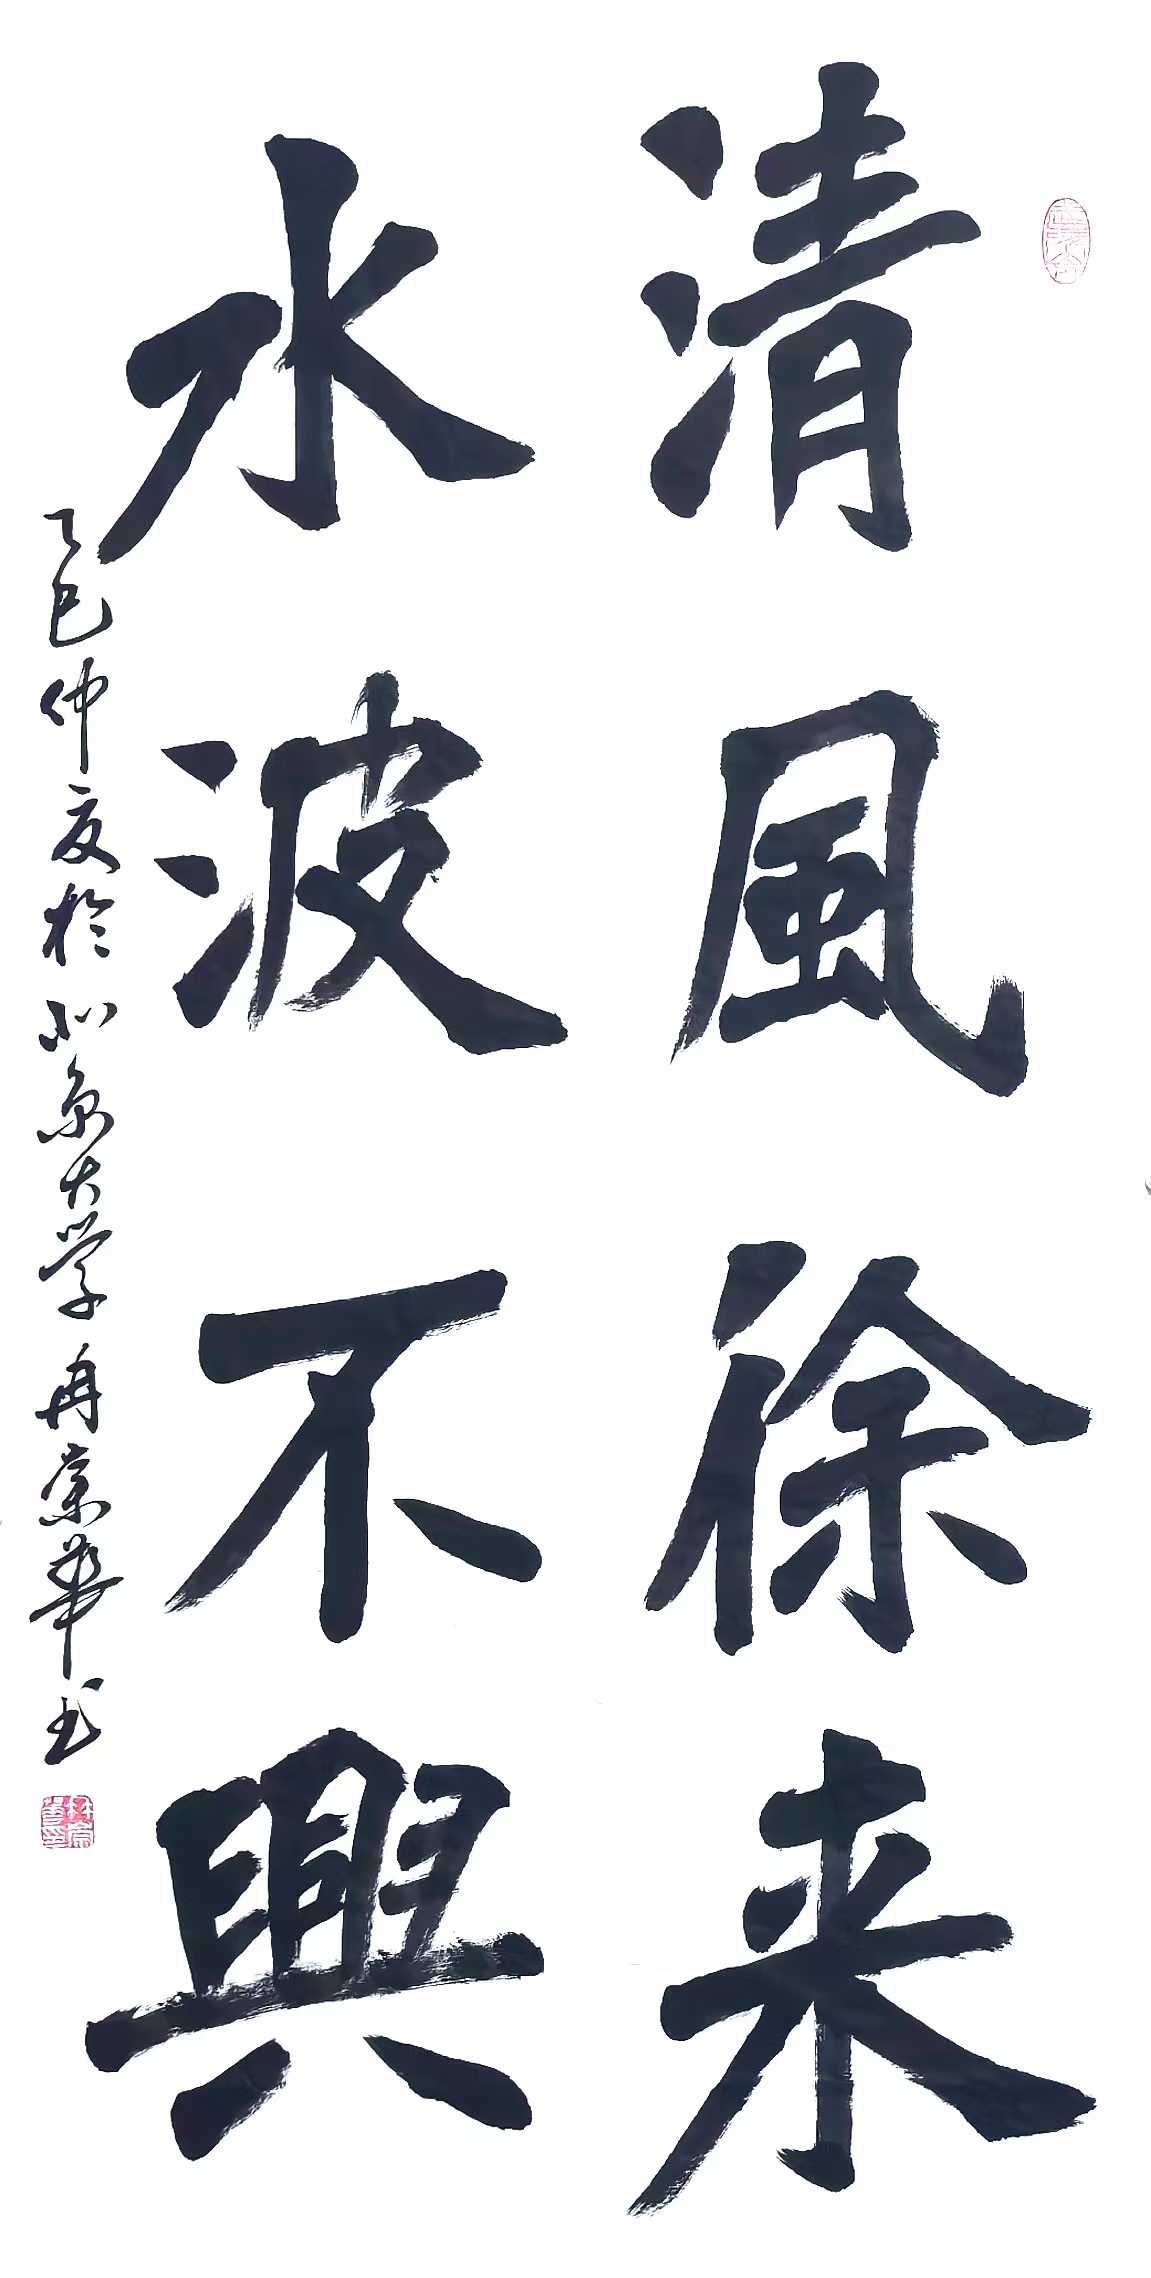 清風徐来
水波不興
乙巳仲夏於北京大学冉崇華书